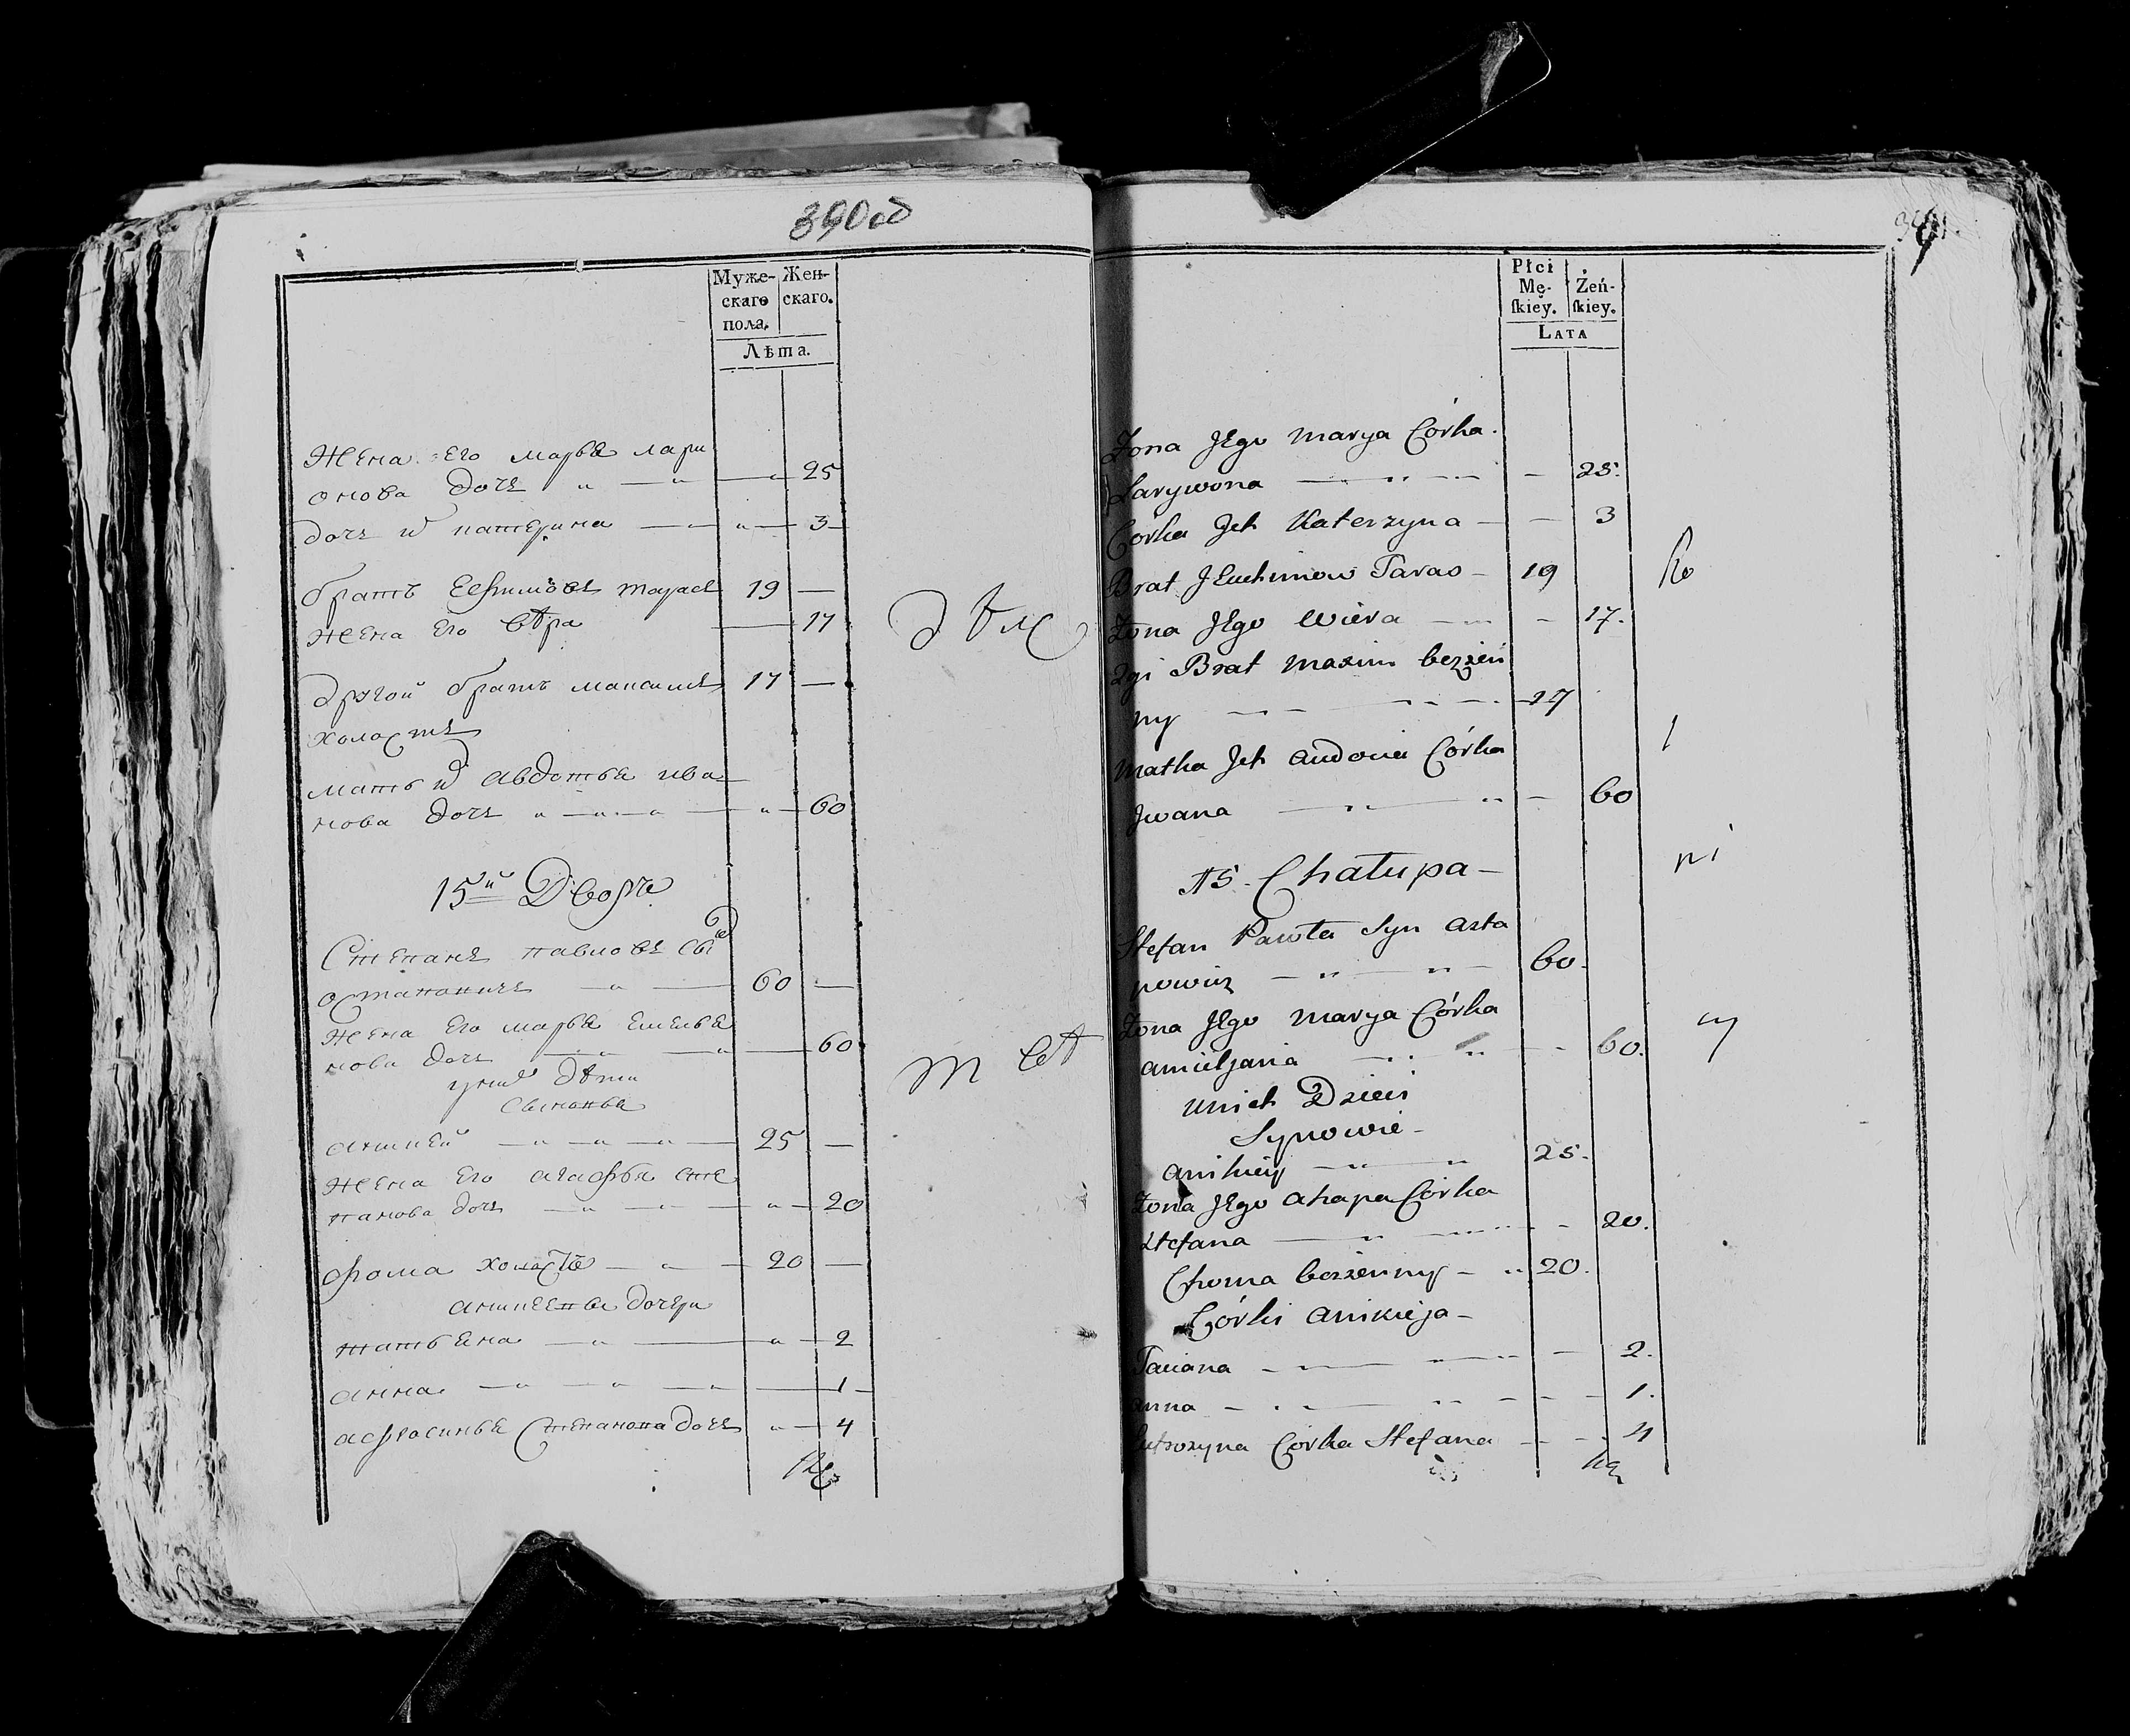 390 об
Муже-
скаго
пола.
Жен-
скаго.
Лѣта.
Жена Его марья лари
онова дочь 25
дочь их катерина 3
братъ Ефимовъ тарасъ 19
жена Его вѣра 17
другой братъ максимъ 17
холостъ
мать их авдотья ива
нова дочь 60
15й Дворъ
Степанъ павловъ сынъ
остаповичъ 60
жена Его марья Емелья
нова дочь 60
у них дѣти
сыновья
аникей 25
жена Его агафья сте
панова дочь 20
фома холостъ 20
аникеевы дочери
татьяна 2
анна 1
афросинья Степанова дочь 4
Płci
Mę-
ſkiey.
Żeń-
ſkiey.
LATA
Żona JEgo Marya Córka
Larywona 25.
Córka Jch Katerzyna 3
Brat JEuchimow Taras 19
Żona JEgo Wiera 17.
2gi Brat Maxim bezżen
ny 17
Matka Jch Audocia Córka
Jwana 60
15. Chałupa
Stefan Pawła Syn Asta
powicz 60.
Żona JEgo Marya Córka
Amieljana 60.
U nich Dzieci
Synowie
Anikiey 25.
Żona JEgo Ahapa Córka
Stefana 20.
Choma bezżenny 20.
Córki Anikieja
Taciana 2.
Anna 1.
Eufrozyna Córka Stefana 4